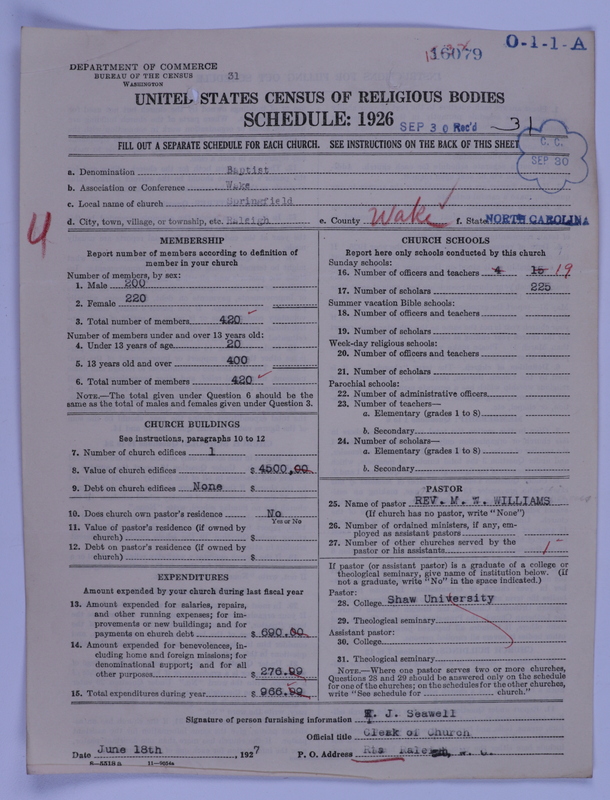 16079
O-1-1-A
DEPARTMENT OF COMMERCE
BUREAU OF THE CENSUS 31
WASHINGTON
UNITED STATES CENSUS OF RELIGIOUS BODIES
SCHEDULE: 1926 SEP 30 Rec'd 31
C. C.
SEP 30
FILL OUT A SEPARATE SCHEDULE FOR EACH CHURCH. SEE INSTRUCTIONS ON THE BACK OF THIS SHEET
a. Denomination Baptist
b. Association or Conference Wake
c. Local name of church Springfield
d. City, town, village, or township, etc. Raleigh e. County Wake f. State NORTH CAROLINA
4
MEMBERSHIP
Report number of members according to definition of
member in your church
Number of members, by sex:
1. Male 200
2. Female 220
3. Total number of members 420
Number of members under and over 13 years old:
4. Under 13 years of age 20
5. 13 years old and over 400
6. Total number of members 420
NOTE.—The total given under Question 6 should be the
same as the total of males and females given under Question 3.
CHURCH BUILDINGS
See instructions, paragraphs 10 to 12
7. Number of church edifices 1
8. Value of church edifices $ 4500,00
9. Debt on church edifices None $
10. Does church own pastor's residence No
Yes or No
11. Value of pastor's residence (if owned by
church) $
12. Debt on pastor's residence (if owned by
church) $
EXPENDITURES
Amount expended by your church during last fiscal year
13. Amount expended for salaries, repairs,
and other running expenses; for im-
provements or new buildings; and for
payments on church debt $ 690.00
14. Amount expended for benevolences, in-
cluding home and foreign missions; for
denominational support; and for all
other purposes $ 276.99
15. Total expenditures during year $ 966.99
CHURCH SCHOOLS
Report here only schools conducted by this church
Sunday schools:
16. Number of officers and teachers 4 15 19
17. Number of scholars 225
Summer vacation Bible schools:
18. Number of officers and teachers
19. Number of scholars
Week-day religious schools:
20. Number of officers and teachers
21. Number of scholars
Parochial schools:
22. Number of administrative officers
23. Number of teachers—
a. Elementary (grades 1 to 8)
b. Secondary
24. Number of scholars—
a. Elementary (grades 1 to 8)
b. Secondary
PASTOR
25. Name of pastor REV. M. W. WILLIAMS
(If church has no pastor, write "None")
26. Number of ordained ministers, if any, em-
ployed as assistant pastors
27. Number of other churches served by the
pastor or his assistants 1
If pastor (or assistant pastor) is a graduate of a college or
theological seminary, give name of institution below. (If
not a graduate, write "No" in the space indicated.)
Pastor:
28. College Shaw University
29. Theological seminary
Assistant pastor:
30. College
31. Theological seminary
NOTE.—Where one pastor serves two or more churches,
Questions 28 and 29 should be answered only on the schedule
for one of the churches; on the schedules for the other churches,
write "See schedule for church."
Signature of person furnishing information J. Seawell
Official title Clerk of Church
Date June 18th, 1927 P. O. Address Raleigh, N. C.
8-5518a 11-9034a